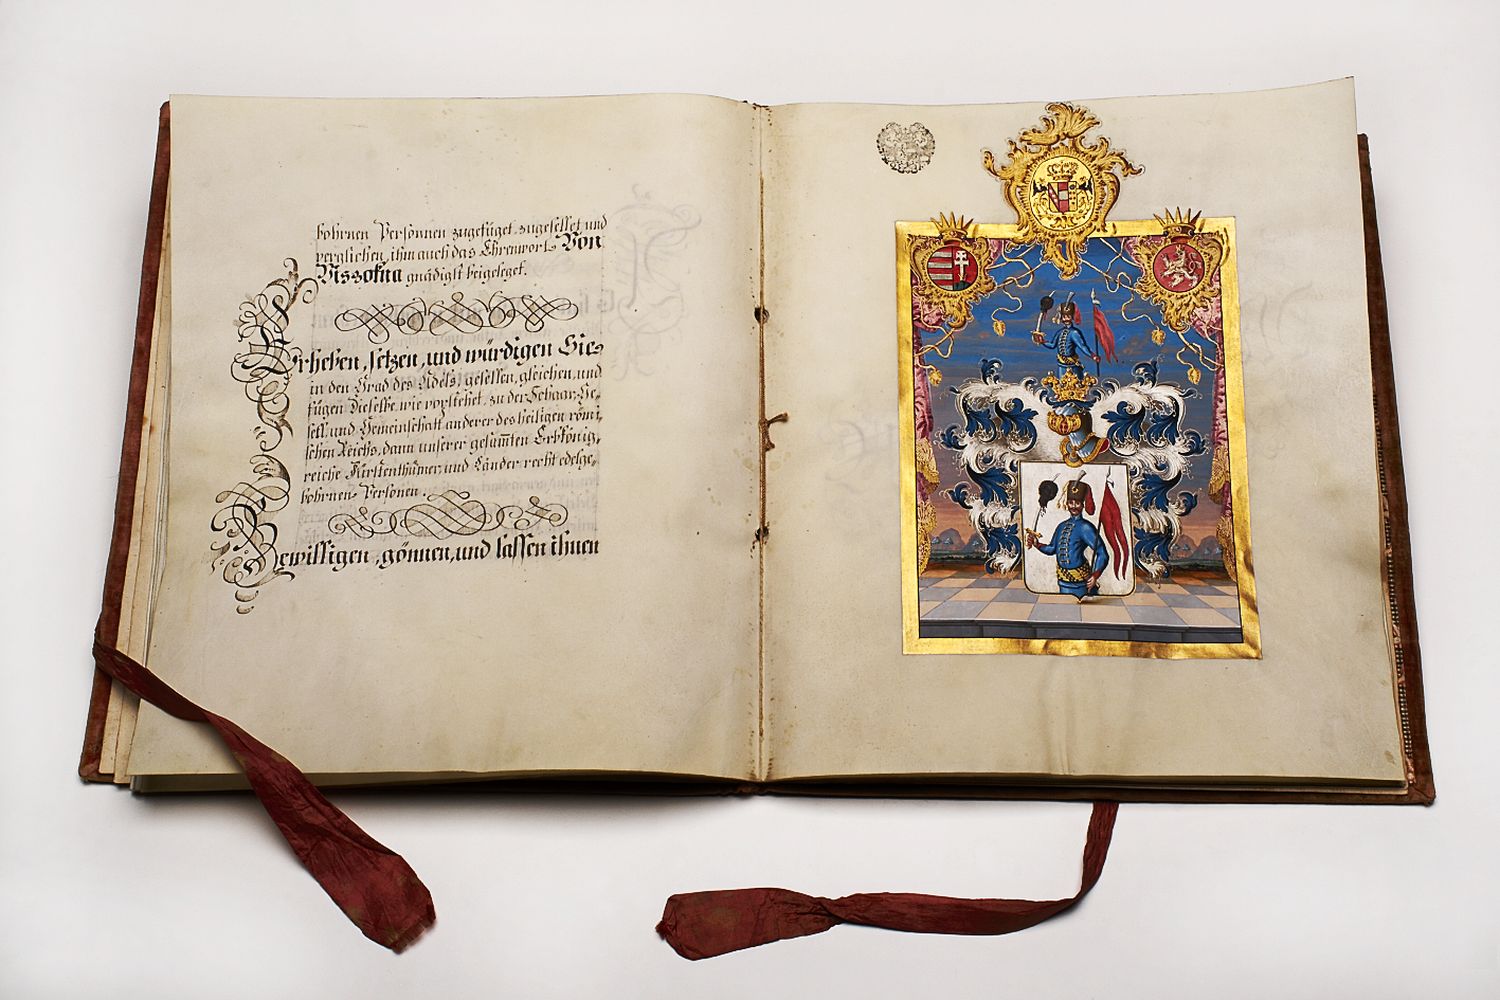 bohrnen Personen zugefüget, zugesellet, und
verglichen, ihm auch das Ehrenwort Von
Vissokna gnädigst beigeleget.
Erheben, setzen, und würdigen Sie
in den Grad des Adels, gesellen, gleichen, und
fügen Dieselbe, wie vorstehet, zu der Schaar, Ge-
sell, und Gemeinschaft anderer des heiligen römi-
schen Reichs, dann unserer gesamten Erbkönig-
reiche, Fürstenthümer, und Länder recht edelge-
bohrnen Personen.
Bewilligen, gönnen, und lassen ihnen